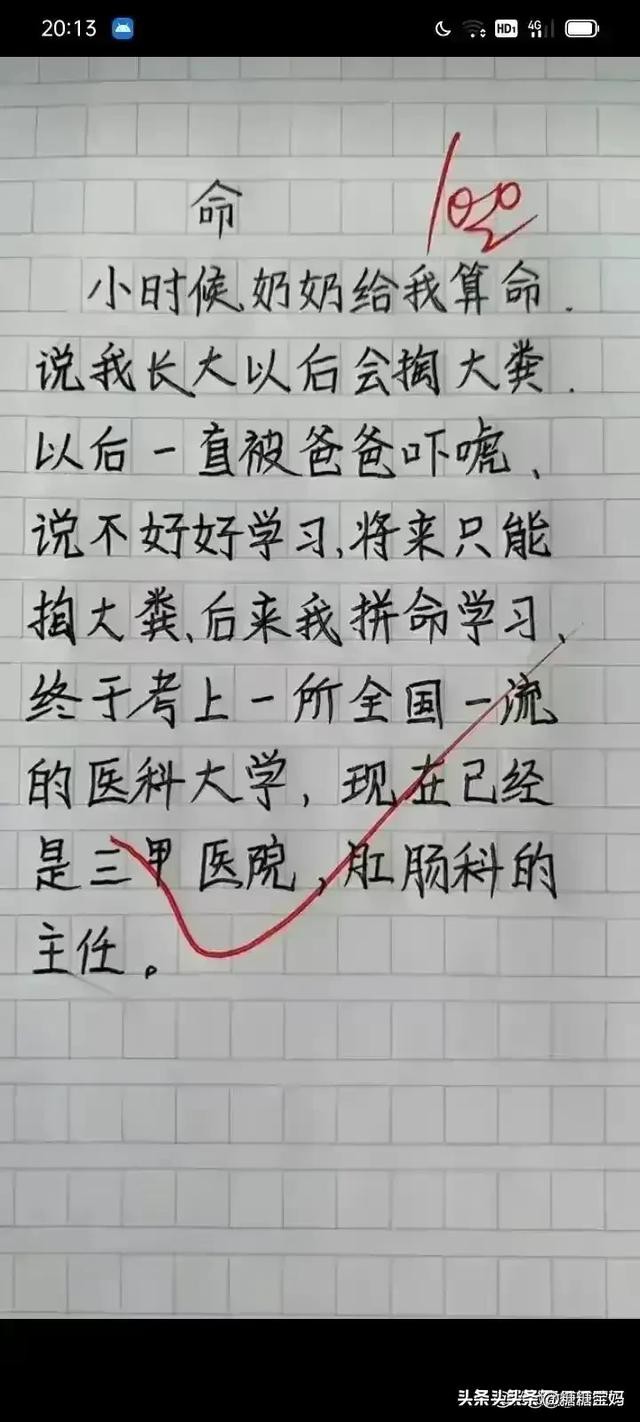 20:13
HD1 4G
命
100
小时候,奶奶给我算命.
说我长大以后会掏大粪.
以后一直被爸爸吓唬、
说不好好学习,将来只能
掏大粪、后来我拼命学习、
终于考上一所全国一流
的医科大学，现在已经
是三甲医院，肛肠科的
主任。
头条@糖糖宝妈